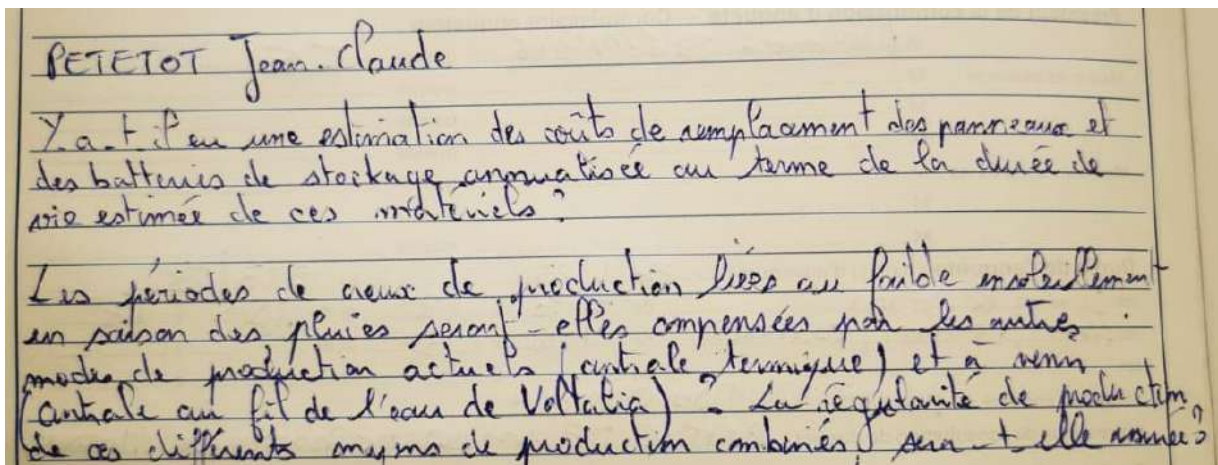 PETETOT Jean-Claude
Y a-t-il eu une estimation des coûts de remplacement des panneaux et
des batteries de stockage annualisée au terme de la durée de
vie estimée de ces matériels ?
Les périodes de creux de production liées au faible ensoleillement
en saison des pluies seront-elles compensées par les autres
modes de production actuels (centrale termique) et à venir
(centrale au fil de l'eau de Voltalia) ? La régularité de production
de ces différents moyens de production combinés sera-t-elle assurée ?